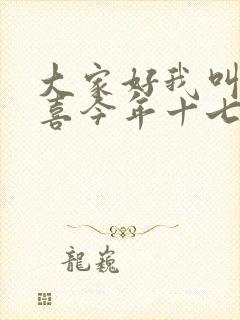 大家好我叫
喜今年十七
龍巍